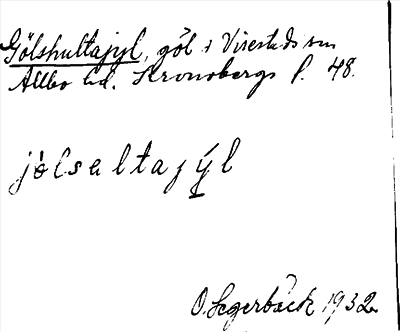 Gölshultajyl, göl i Virestads sn
Allbo hd. Kronobergs l. 48.
jölsaltajýl
O. Segerbäck 1932